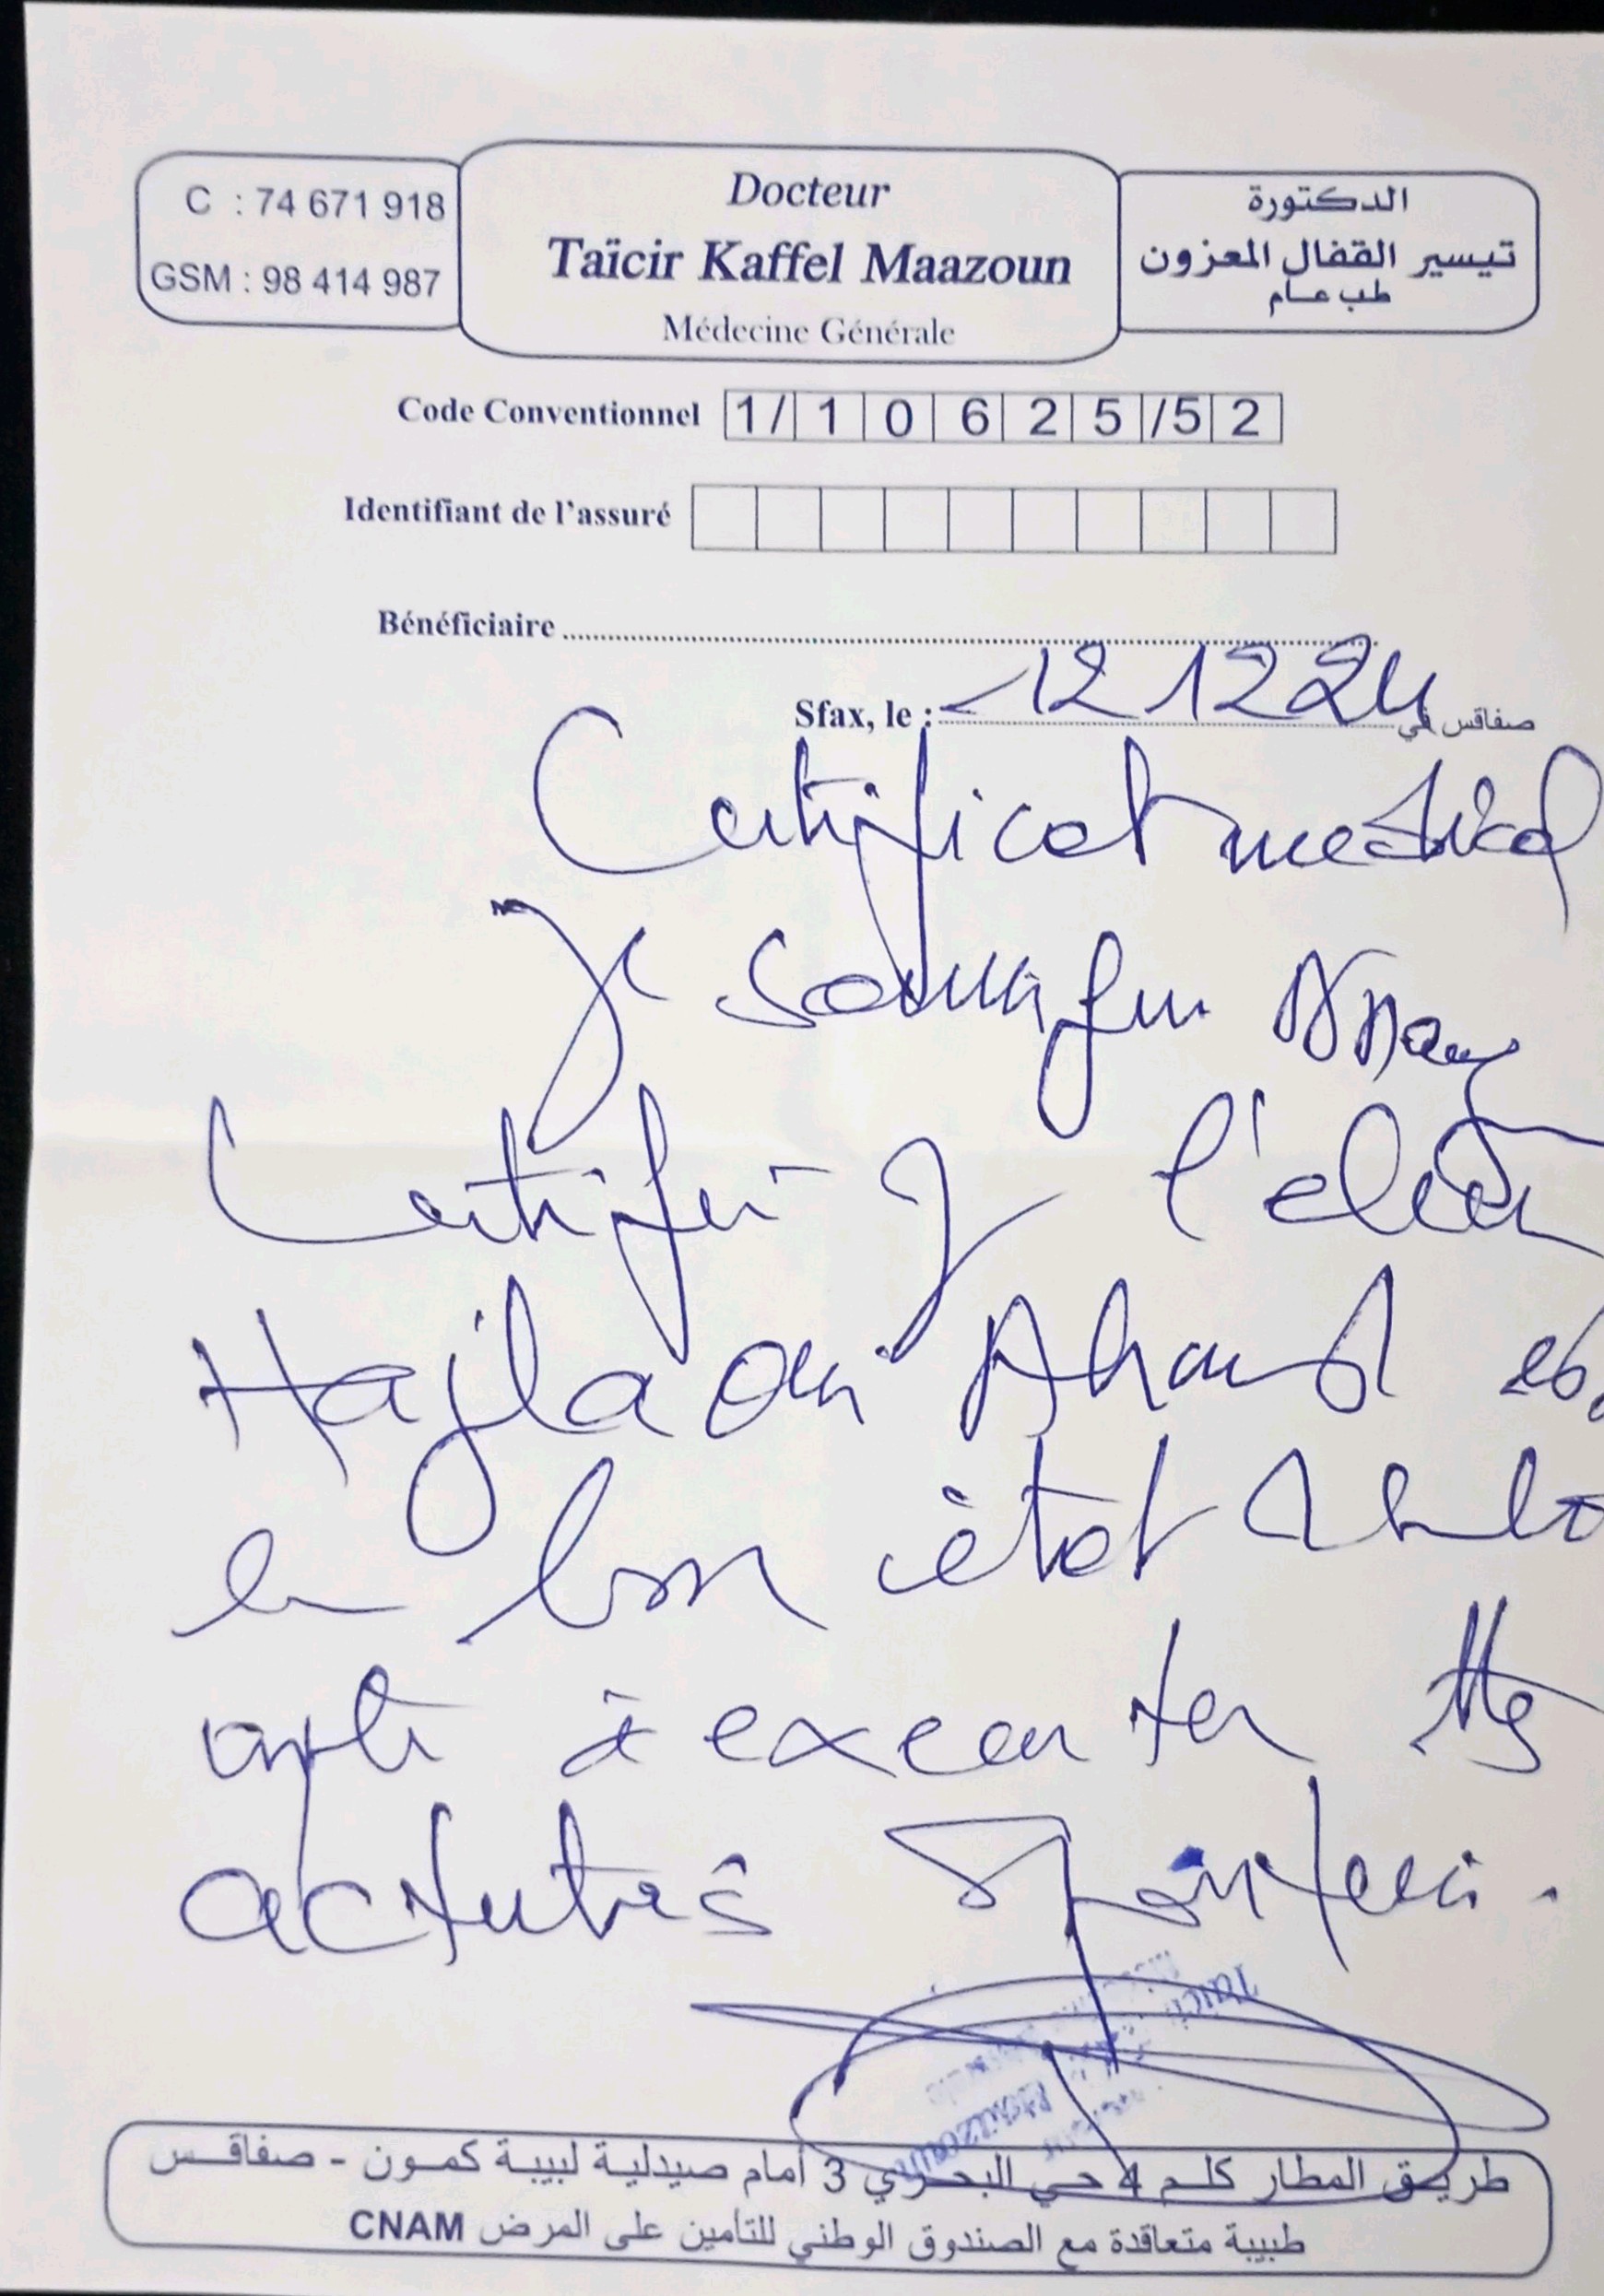 C : 74 671 918
GSM : 98 414 987
Docteur
Taïcir Kaffel Maazoun
Médecine Générale
الدكتورة
تيسير القفال المعزون
طب عام
Code Conventionnel 1/10625/52
Identifiant de l'assuré
Bénéficiaire
Sfax, le : 12 12 24 صفاقس في
Certificat medical
Je
Certifie q l'eleve
Hajlaoui Ahmed es
en bon état
apte à executer tts
activités sportives.
Maazoun
طريق المطار كلم 4 حي البحري 3 أمام صيدلية لبيبة كمون - صفاقس
طبيبة متعاقدة مع الصندوق الوطني للتأمين على المرض CNAM